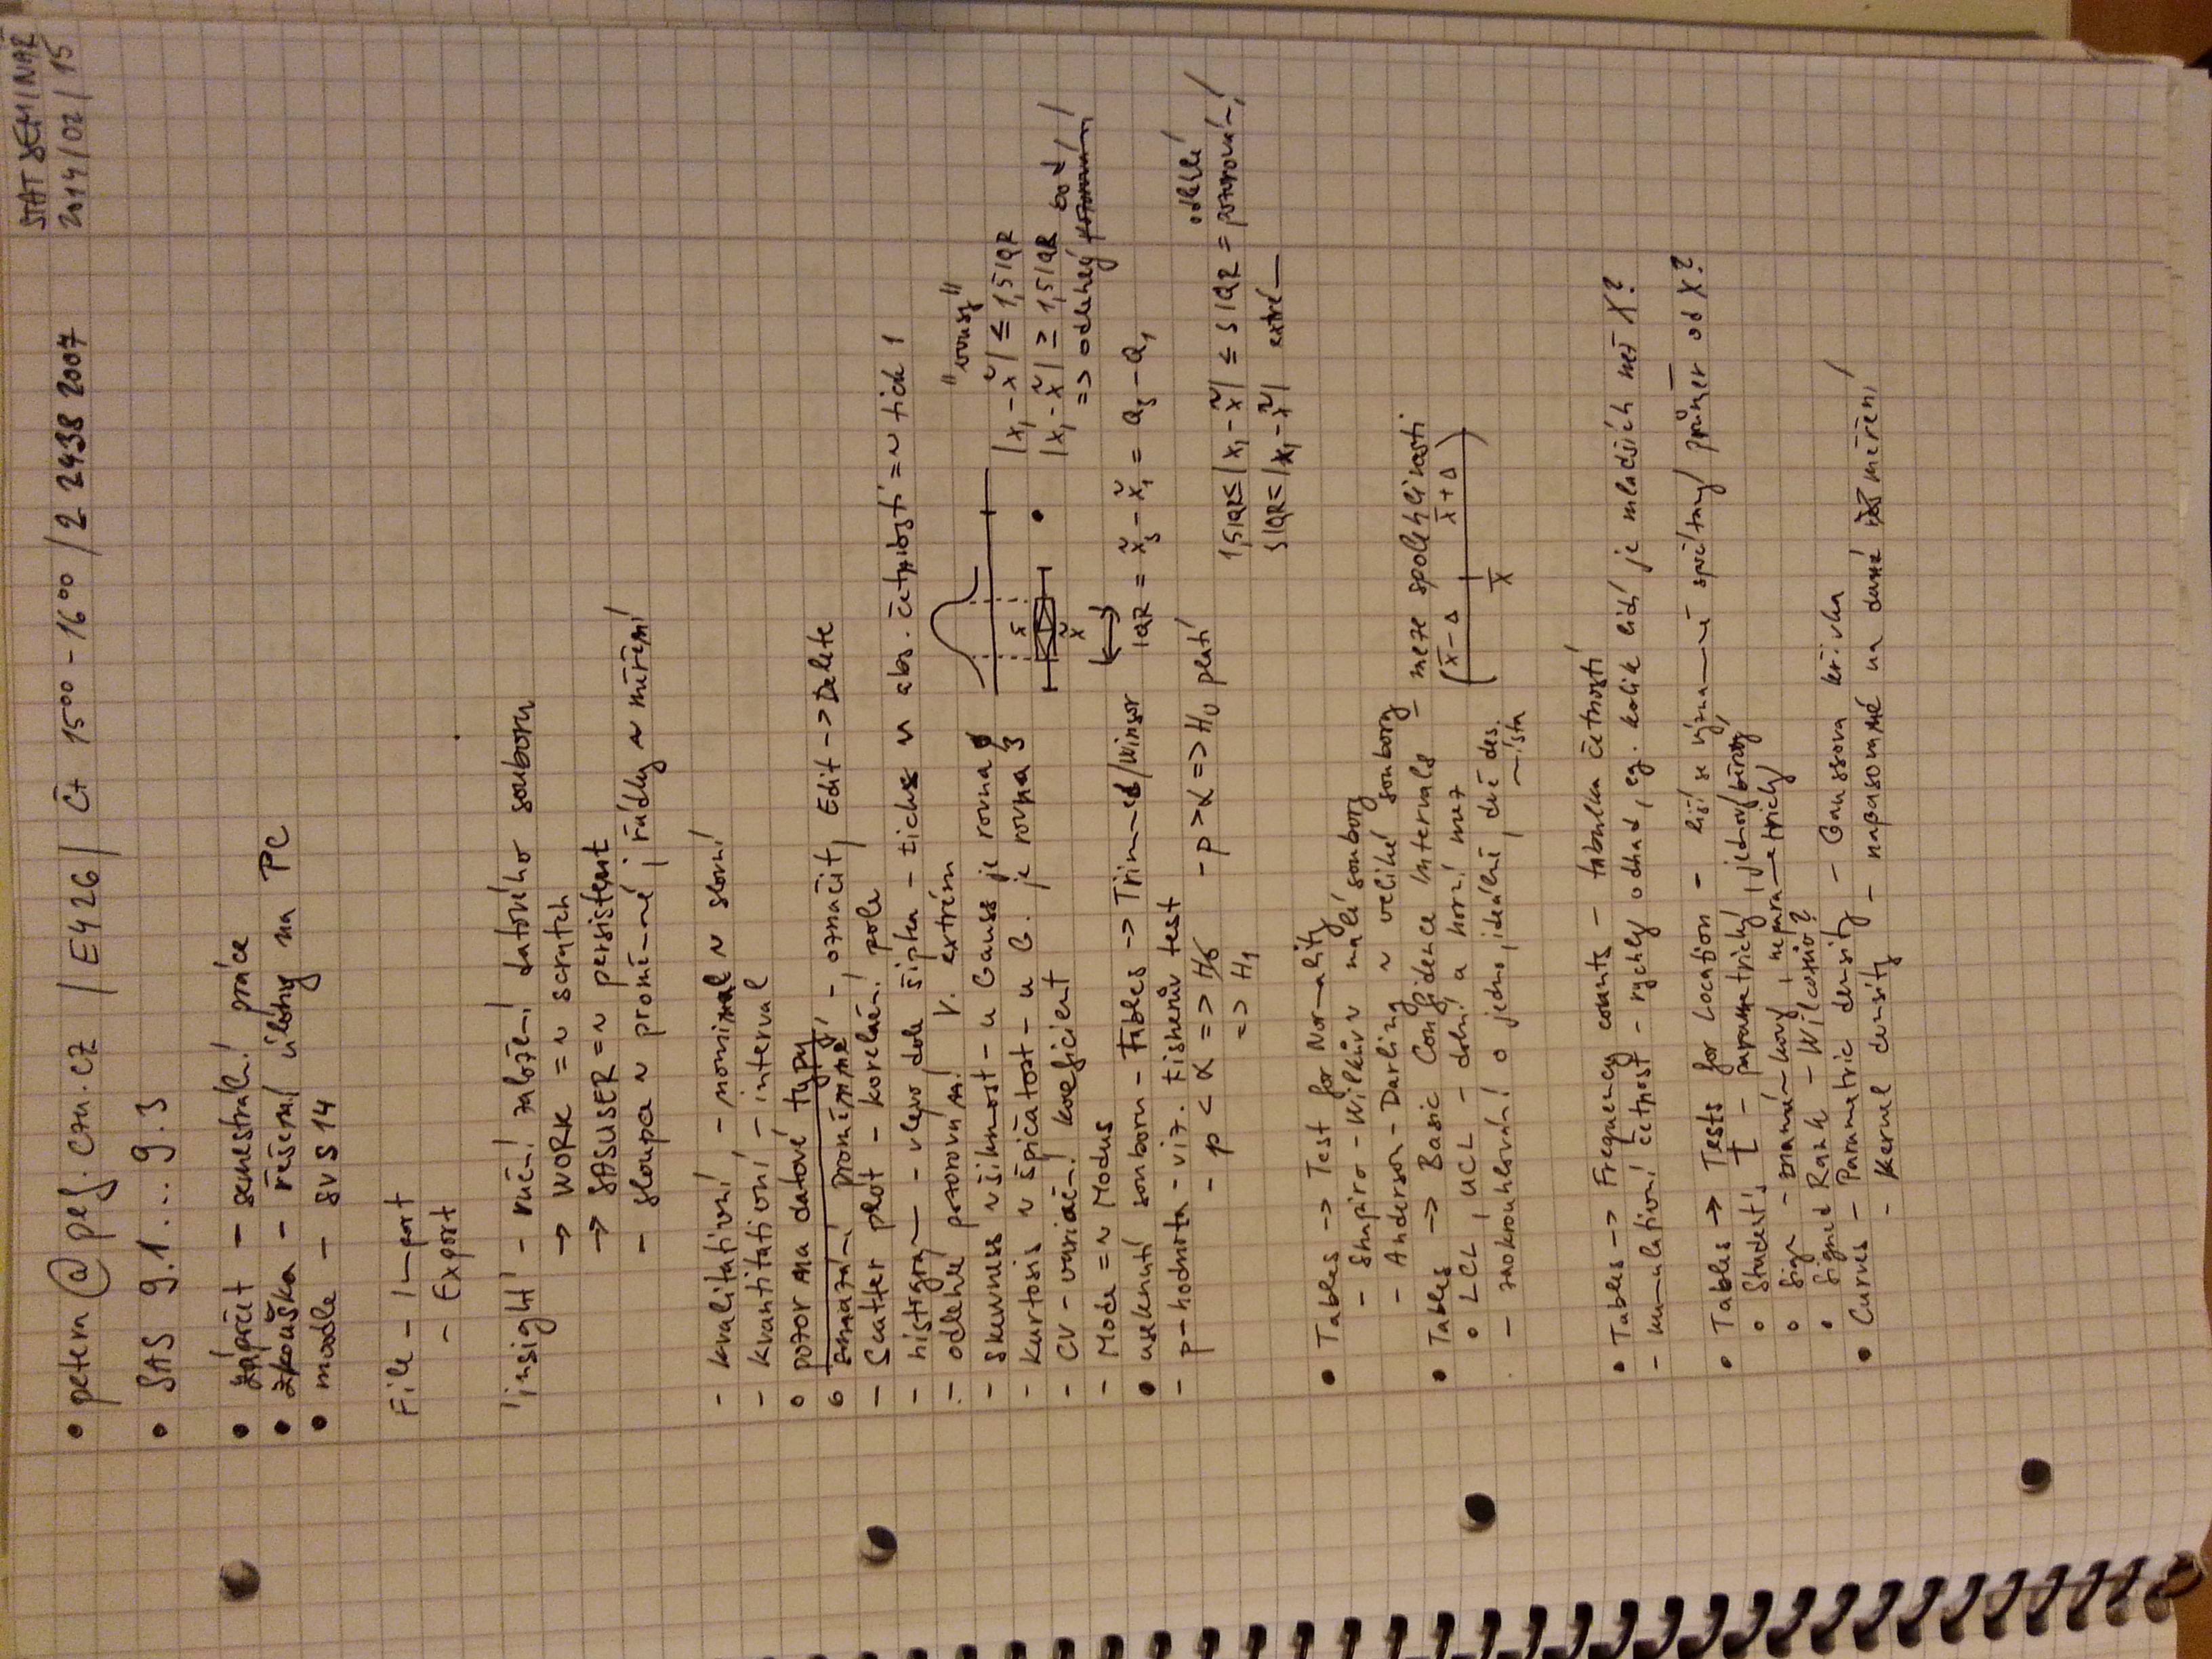 STAT SEMINAŘ
2014/02/15
• petern@pef.czu.cz | E426 | Čt 15⁰⁰-16⁰⁰ / 2 2438 2007
• SAS 9.1...9.3
• zápočet - semestrální práce
• zkouška - řešení úlohy na PC
• moodle - SVS14
File - Import
- Export
insight - ruční založení datového souboru
→ WORK = ~ scratch
→ SASUSER = ~ persistent
- sloupce ~ proměnné, řádky ~ měření
- kvalitativní - nominal ~ slovní
- kvantitativní - interval
• pozor na datové typy
• smazání proměnné - označit, Edit -> Delete
- Scatter plot - korelační pole
- histogram - vlevo dole šipka - ticks ~ abs. četností = ~ tick 1
- odlehlé pozorování v. extrém
- skewness ~ šikmost - u Gauss je rovna
- kurtosis ~ špičatost - u G. je rovna 3
- CV - variační koeficient
- Mode = ~ Modus
"vousy"
|x₁-x̃| ≤ 1,5IQR
|x₁-x̃| ≥ 1,5IQR
=> odlehlý bod
x̄
x̃
• useknutí souboru - tables -> Trimmed/Winsor
IQR = x̃₃-x̃₁ = Q₃-Q₁
- p-hodnota - viz. Fisherův test
- p > α => H₀ platí
- p < α => H₀
=> H₁
1,5IQR ≤ |x₁-x̃| ≤ 3IQR = odlehlé pozorování
3IQR ≤ |x₁-x̃| extrém
• Tables -> Test for Normality
- Shapiro-Wilkův ~ malé soubory
- Anderson-Darling ~ veliké soubory
• Tables -> Basic Confidence Intervals - meze spolehlivosti
• LCL, UCL - dolní a horní mez
x̄-Δ x̄+Δ
x̄
- zaokrouhlování o jedno, ideálně dvě des. místa
• Tables -> Frequency counts - tabulka četností
- kumulativní četnost - rychlý odhad, eg. kolik lidí je mladších než X?
• Tables -> Tests for Location - liší se významně spočítaný průměr od X?
• Student's T - parametrický, jednovýběrový
• Sign - znaménkový, neparametrický
• Signed Rank - Wilcoxonův?
• Curves - Parametric density - Gaussova křivka
- Kernel density - napasované na dané měření